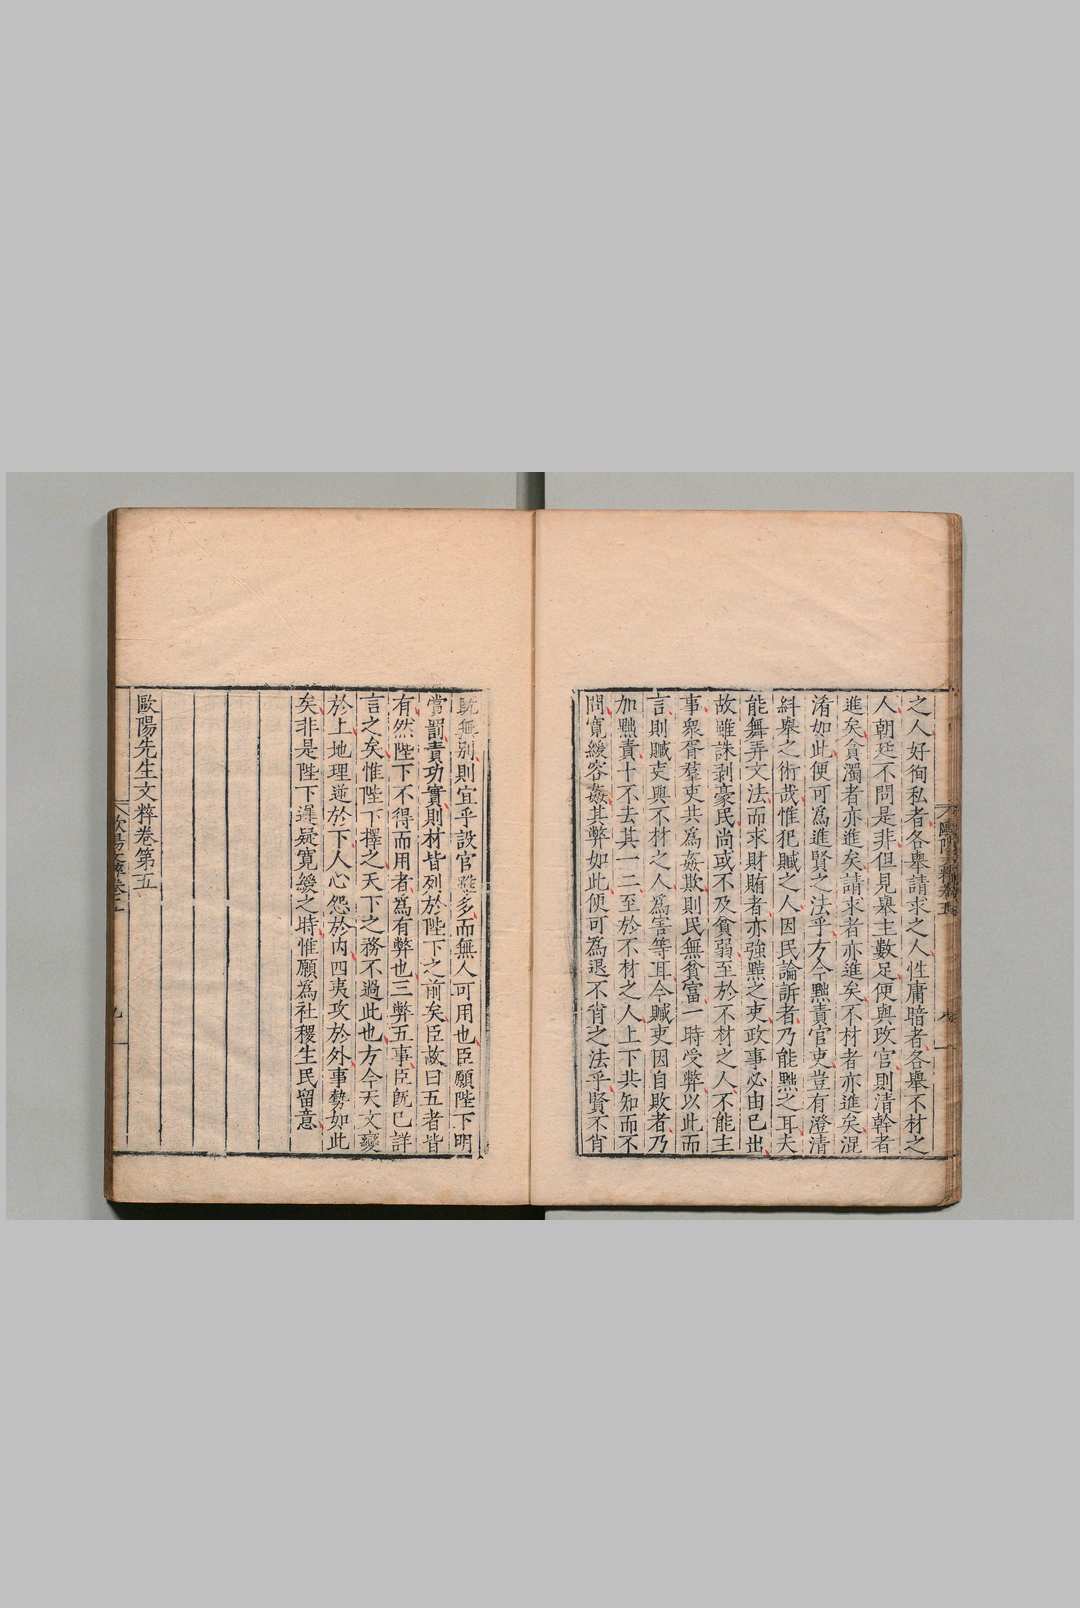 之人好徇私者各舉請求之人性庸暗者各舉不材之
人朝廷不問是非但見舉主數足便與改官則清幹者
進矣貪濁者亦進矣請求者亦進矣不材者亦進矣混
淆如此便可為進賢之法乎方今黜責官吏豈有澄清
糾舉之術哉惟犯贓之人因民論訴者乃能黜之耳夫
能舞弄文法而求財賄者亦強黠之吏政事必由己出
故雖誅剥豪民尚或不及貧弱至於不材之人不能主
事衆胥羣吏共為姦欺則民無貧富一時受弊以此而
言則贓吏與不材之人為害等耳今贓吏因自敗者乃
加黜責十不去其一二至於不材之人上下共知而不
問寬緩容姦其弊如此便可為退不肖之法乎賢不肖
歐陽文粹卷五
八
既無别則宜乎設官雖多而無人可用也臣願陛下明
賞罰責功實則材皆列於陛下之前矣臣故曰五者皆
有然陛下不得而用者為有弊也三弊五事臣旣已詳
言之矣惟陛下擇之天下之務不過此也方今天文變
於上地理逆於下人心怨於内四夷攻於外事勢如此
矣非是陛下遲疑寬緩之時惟願為社稷生民留意
歐陽先生文粹卷第五
九